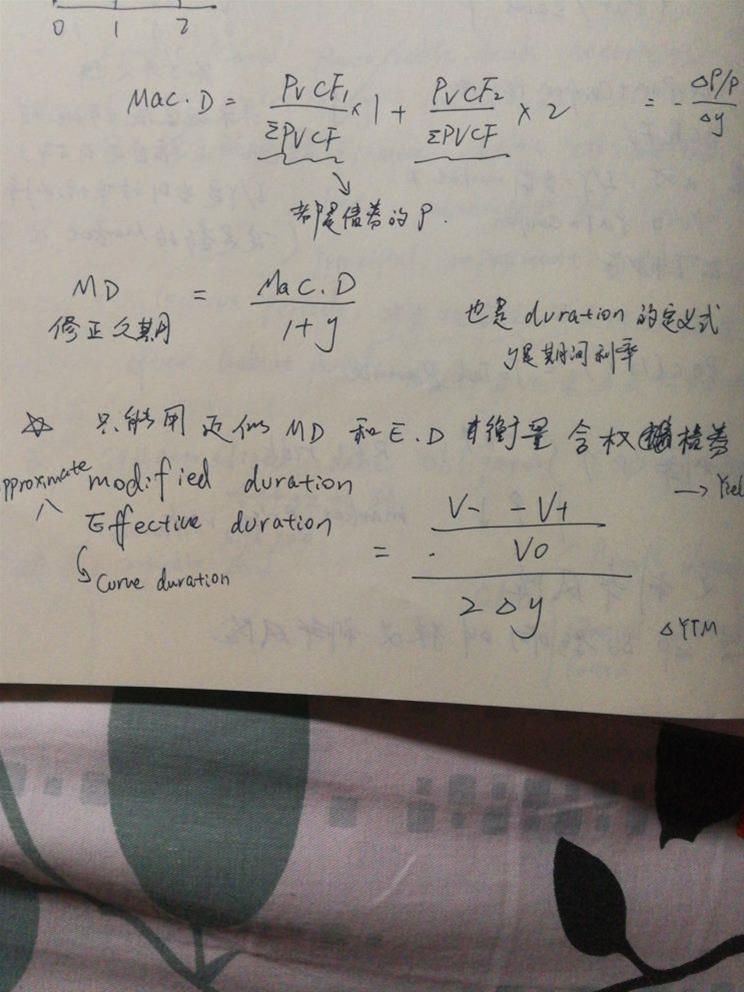 0 1 2
Mac.D = PVCF1/ΣPVCF × 1 + PVCF2/ΣPVCF × 2 = - ΔP/P / Δy
都是债券的P.
MD = Mac.D / 1+y
修正久期
也是duration的定义式
y是期间利率
☆ 只能用近似MD和E.D 衡量含权债券
approximate modified duration
Effective duration = V- - V+ / V0 / 2Δy
→ Yiel
Curve duration
ΔYTM